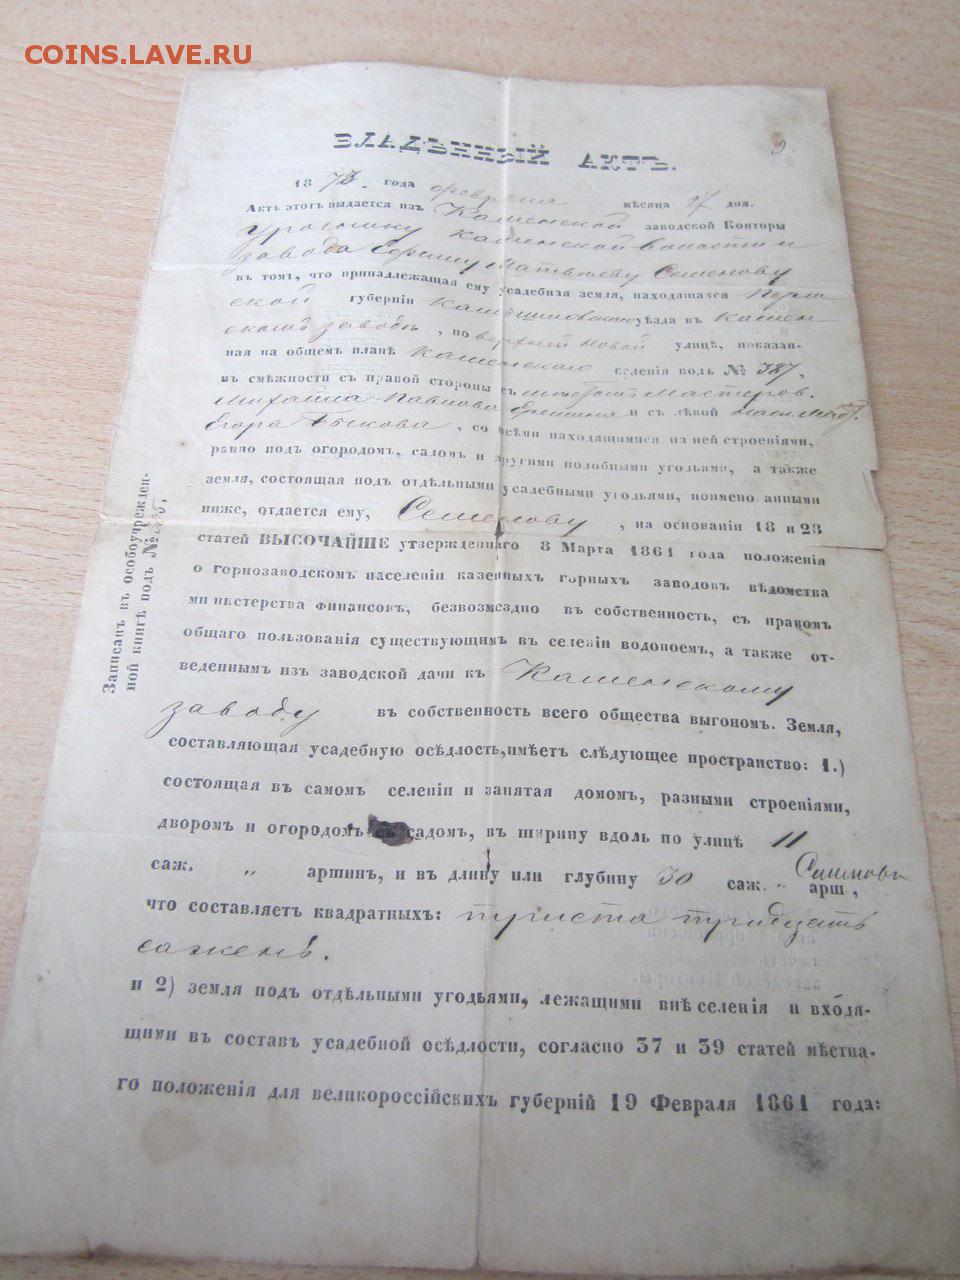 COINS.LAVE.RU
ВЛАДѢННЫЙ АКТЪ.
18 73. года февраля мѣсяца 27 дня.
Актъ этотъ выдается изъ Каменской заводской Конторы
Урочнику Каменской волости и
завода Ефиму Матвѣеву Семенову
въ томъ, что принадлежащая ему усадебная земля, находящаяся Перм
ской губерніи Камышловскаго уѣзда въ Камен
скомъ заводѣ, по верхней новой улицѣ, показан-
ная на общемъ планѣ Каменскаго селенія подъ № 387,
въ смежности съ правой стороны съ Мастеров.
Михайла Павлова и съ лѣвой
Егора Быкова, со всѣми находящимися на ней строеніями,
равно подъ огородомъ, садомъ и другими подобными угодьями, а также
земля, состоящая подъ отдѣльными усадебными угодьями, поимено анными
ниже, отдается ему, Семенову, на основаніи 18 и 23
статей ВЫСОЧАЙШЕ утвержденнаго 8 Марта 1861 года положенія
о горнозаводскомъ населеніи казенныхъ горныхъ заводовъ вѣдомства
министерства Финансовъ, безвозмездно въ собственность, съ правомъ
общаго пользованія существующимъ въ селеніи водопоемъ, а также от-
веденнымъ изъ заводской дачи къ Каменскому
заводу въ собственность всего общества выгономъ. Земля,
составляющая усадебную осѣдлость, имѣетъ слѣдующее пространство: 1.)
состоящая въ самомъ селеніи и занятая домомъ, разными строеніями,
дворомъ и огородомъ съ садомъ, въ ширину вдоль по улицѣ 11
саж. „ аршинъ, и въ длину или глубину 30 саж. „ арш,
что составляетъ квадратныхъ: триста тридцать
сажень.
и 2) земля подъ отдѣльными угодьями, лежащими внѣ селенія и входя-
щими въ составъ усадебной осѣдлости, согласно 37 и 39 статей мѣстна-
го положенія для великороссійскихъ губерній 19 Февраля 1861 года:
Записанъ въ особоучрежден-
ной книгѣ подъ №